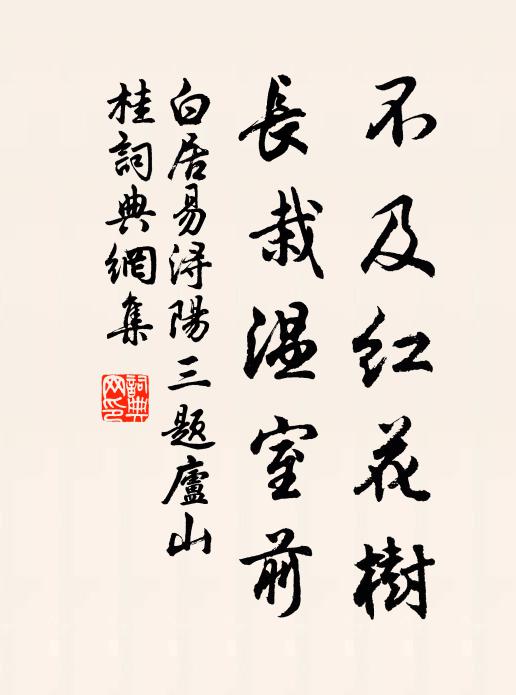 不及红花樹
長栽温室前
白居易浔陽三题廬山
桂詞典網集
詞典
网印